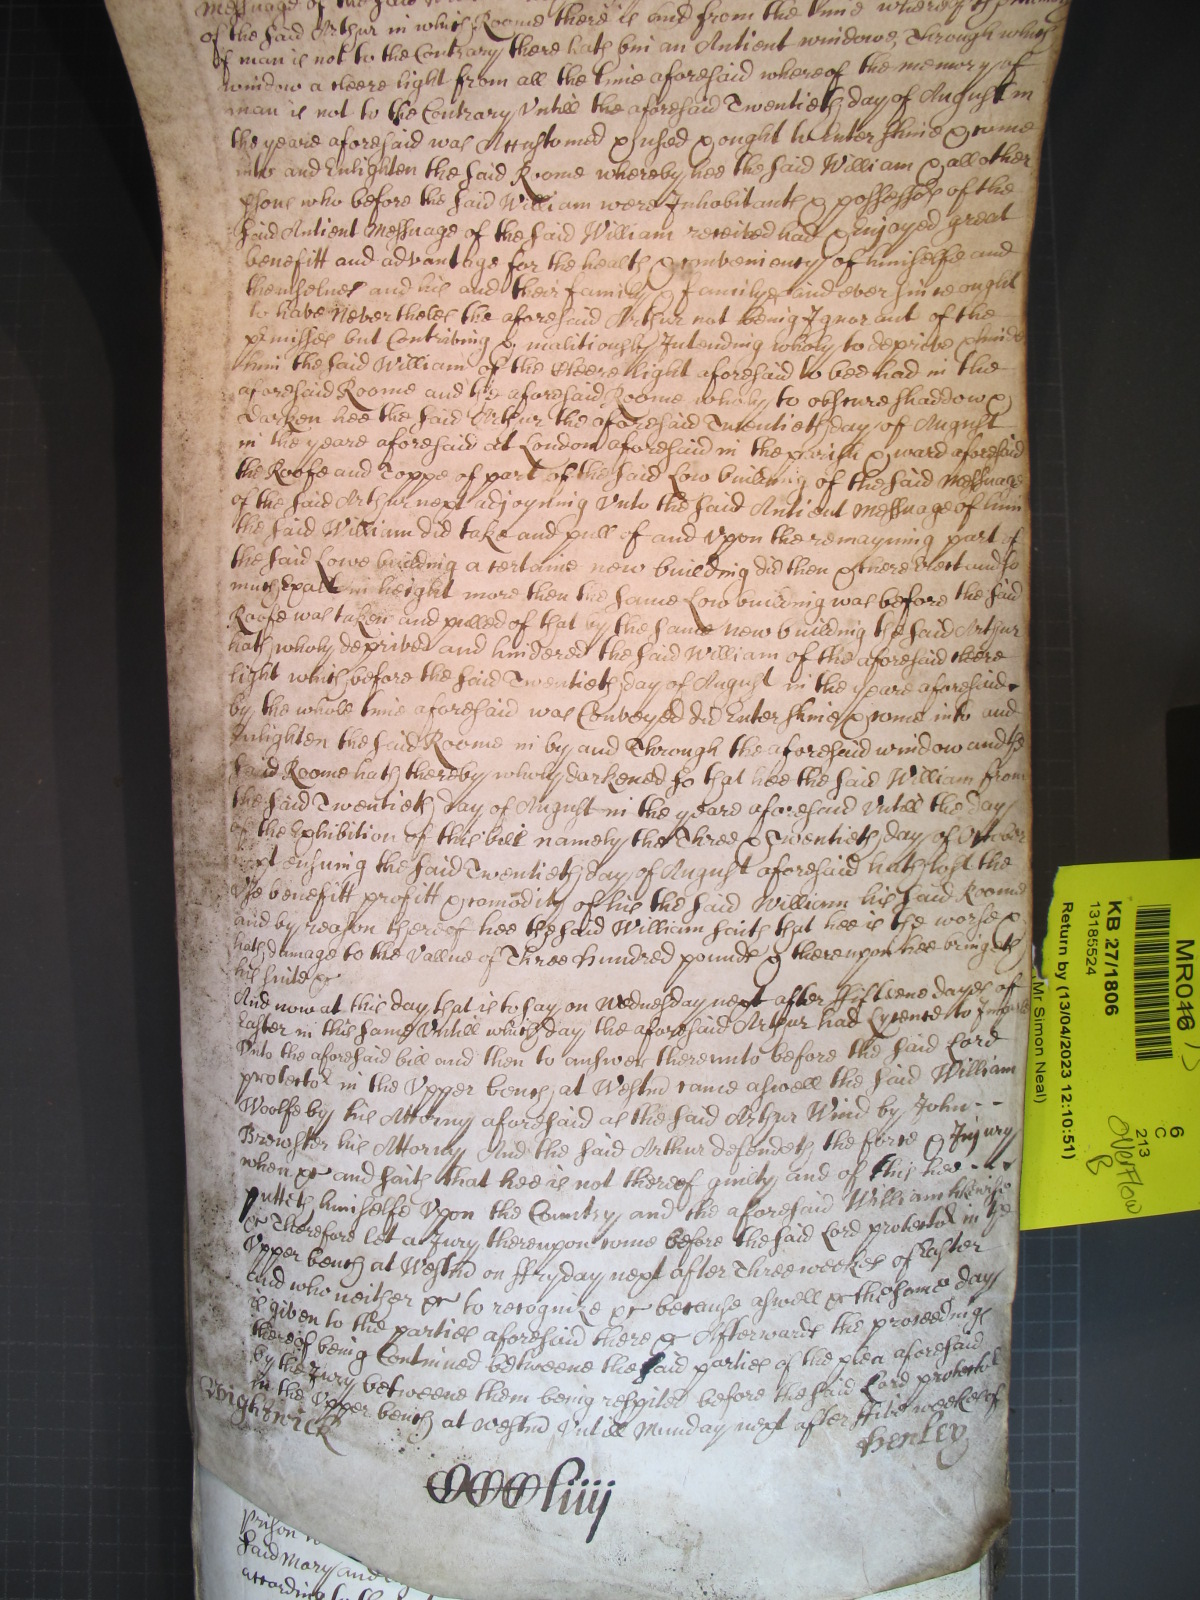 Messuage of the said
of the said Arthur in which Roome there is and from the time whereof the memory
of man is not to the Contrary there hath bin an Antient windowe, Through which
window a cleere light from all the time aforesaid whereof the memory of
man is not to the Contrary Untill the aforesaid Twentieth day of August in
the yeare aforesaid was Accustomed & used & ought to Enter shine & come
into and Enlighten the said Roome whereby hee the said William & all other
psons who before the said William were Inhabitants & possessors of the
said Antient Messuage of the said William received had & enjoyed great
benefitt and advantage for the health & conveniency of himselfe and
themselves and his and their family & familyes and ever since ought
to have Nevertheles the aforesaid Arthur not being Ignorant of the
pmisses but Contriving & malitiously Intending wholy to deprive & hinder
him the said William of the Cleere light aforesaid to bee had in the
aforesaid Roome and the aforesaid Roome wholy to obscure shaddow &
Darken hee the said Arthur the aforesaid Twentieth day of August
in the yeare aforesaid at London aforesaid in the parish & ward aforesaid
the Roofe and Toppe of part of the said Low building of the said Messuage
of the said Arthur next adjoyning Unto the said Antient Messuage of him
the said William did take and pull of and Upon the remayning part of
the said Lowe building a certaine new building did then & there Erect and so
much Exalt in height more then the same Low building was before the said
Roofe was taken and pulled of that by the same new building the said Arthur
hath wholy deprived and hindered the said William of the aforesaid cleere
light which before the said Twentieth day of August in the yeare aforesaid
by the whole time aforesaid was Conveyed did Enter shine & come into and
Enlighten the said Roome in by and Through the aforesaid window and the
said Roome hath thereby wholy darkened so that hee the said William from
the said Twentieth day of August in the yeare aforesaid Untill the day
of the Exhibition of this bill namely the Three & Twentieth day of October
next ensuing the said Twentieth day of August aforesaid hath lost the
Use benefitt profitt & comodity of his the said William his said Roome
and by reason thereof hee the said William saith that hee is the worse &
hath damage to the Vallue of Three hundred pounds & thereupon hee bringeth
his suite &c
And now at this day that is to say on Wednesday next after fifteene dayes of
Easter in this same Untill which day the aforesaid Arthur had Lycence to Imparle
Unto the aforesaid bill and then to answer thereunto before the said Lord
protector in the Upper bench at Westm came aswell the said William
Woolfe by his Attorny aforesaid as the said Arthur Wind by John - -
Brewster his Attorny And the said Arthur defendeth the force & Injury
when &c and saith that hee is not thereof guilty and of this hee - - -
putteth himselfe Upon the Country and the aforesaid William likewise
&c Therefore let a Jury thereupon come before the said Lord protector in the
Upper bench at Westm on ffryday next after Three weekes of Easter
and who neither &c to recognize &c because aswell &c the same day
is given to the parties aforesaid there &c Afterwards the proceedings
thereof being Continued betweene the said parties of the plea aforesaid
by the Jury betweene them being respited before the said Lord protector
in the Upper bench at Westm Untill Munday next after ffive weekes of
Wightwick
Henley
CCCCliiij
prison
said Mary and
according
MR046
KB 27/1806
13185524
Return by (13/04/2023 12:10:51)
(Mr Simon Neal)
6
C
213
OVERFlow
B